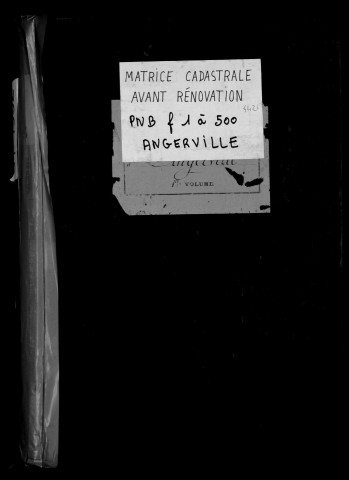 MATRICE CADASTRALE
AVANT RÉNOVATION
PNB f 1 à 500
ANGERVILLE
Angerville
VOLUME.